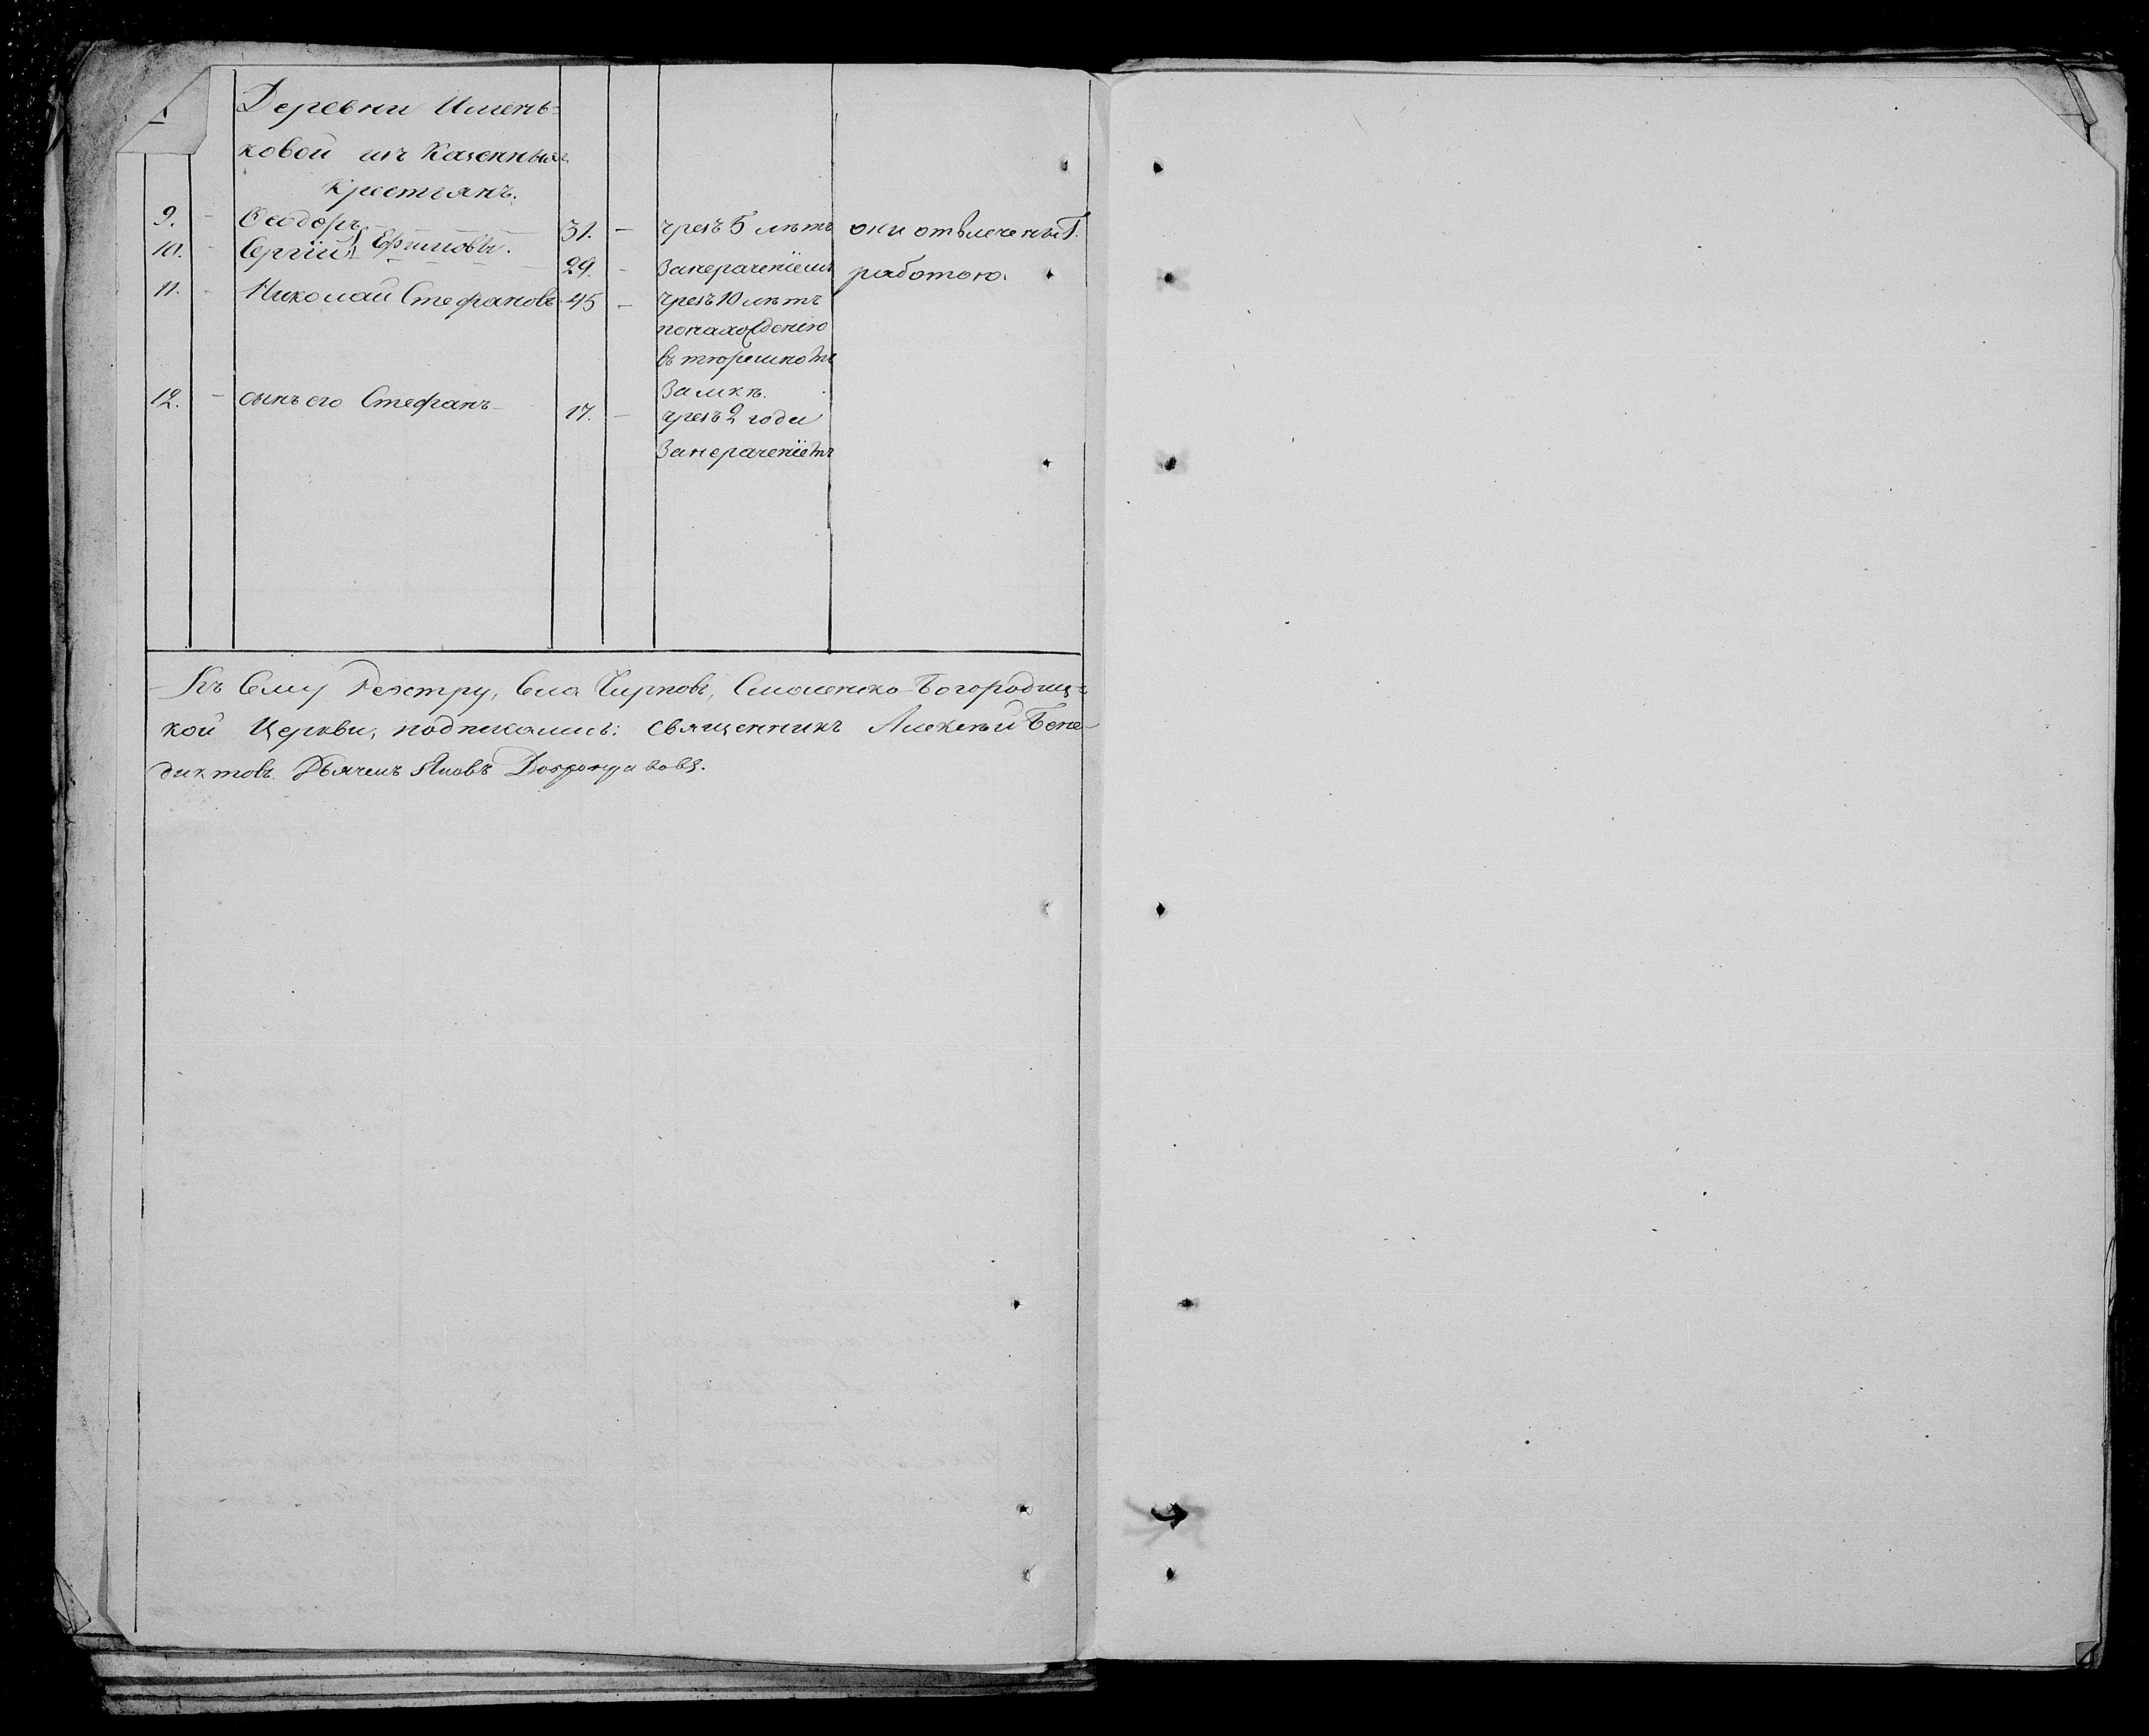 Деревни Имень=
ковой изъ Казенныхъ
Крестьянъ.
9. - Ѳеодоръ 31. - чрезъ 5 лѣтъ они отвлечены
10. - Сергїй } Ефимовы. 29. - Занерачениемъ работою.
11. - Николай Стефановъ 45 - чрезъ 10 лѣтъ
понахожденїю
въ тюремномъ
Замкѣ.
12. - сынъ его Стефанъ 17. - чрезъ 2 года
Занераченїемъ
Къ Сему Реэстру, Села Чирповъ, Смоленско-Богородиц=
кой Церкви, подписались: священникъ Алексѣй Бене-
диктовъ. Дьячекъ Яковъ